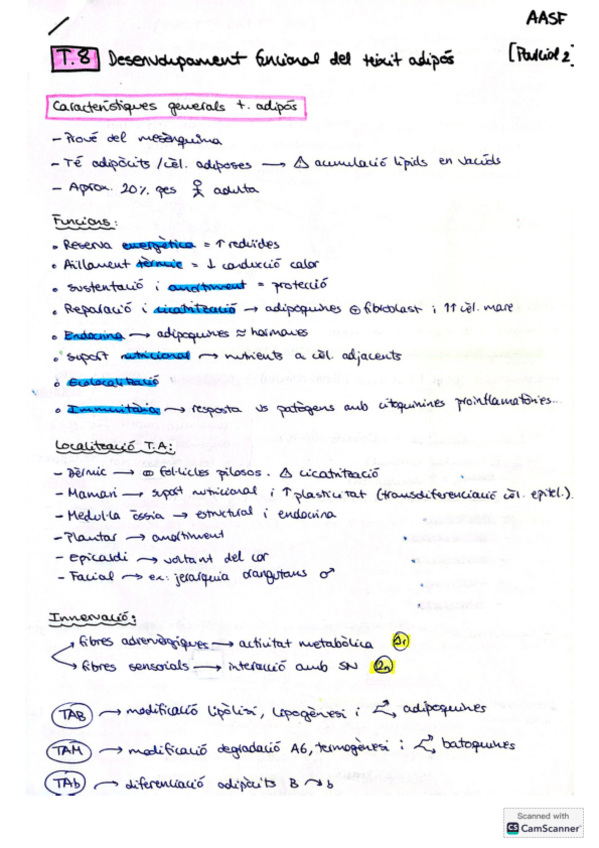 AASF
T.8 Desenvolupament funcional del teixit adipós [Parcial 2]
Característiques generals t. adipós
- Prové del mesènquima
- Té adipòcits / cèl. adiposes → △ acumulació lípids en vacúols
- Aprox. 20% pes adulta
Funcions:
• Reserva energètica = ↑ reduïdes
• Aïllament tèrmic = ↓ conducció calor
• Sustentació i amortiment = protecció
• Reparació i cicatrització → adipoquines ⊕ fibroblast i ↑↑ cèl. mare
• Endocrina → adipoquines ≈ hormones
• Suport nutricional → nutrients a cèl. adjacents
• Ecolocalització
• Immunitària → resposta vs patògens amb citoquinines proinflamatòries...
Localització T.A:
- Dèrmic → fol·licles pilosos. △ cicatrització
- Mamari → suport nutricional i ↑ plasticitat (transdiferenciació cèl. epitel.).
- Medul·la òssia → estructural i endocrina
- Plantar → amortiment
- Epicardi → voltant del cor
- Facial → ex: jerarquia orangutans ♂
Innervació:
fibres adrenèrgiques → activitat metabòlica
fibres sensorials → interacció amb SN
TAB → modificació lipòlisi, lipogènesi i adipoquines
TAM → modificació degradació AG, termogènesi i batoquines
TAb → diferenciació adipòcits B → b
Scanned with
CS CamScanner